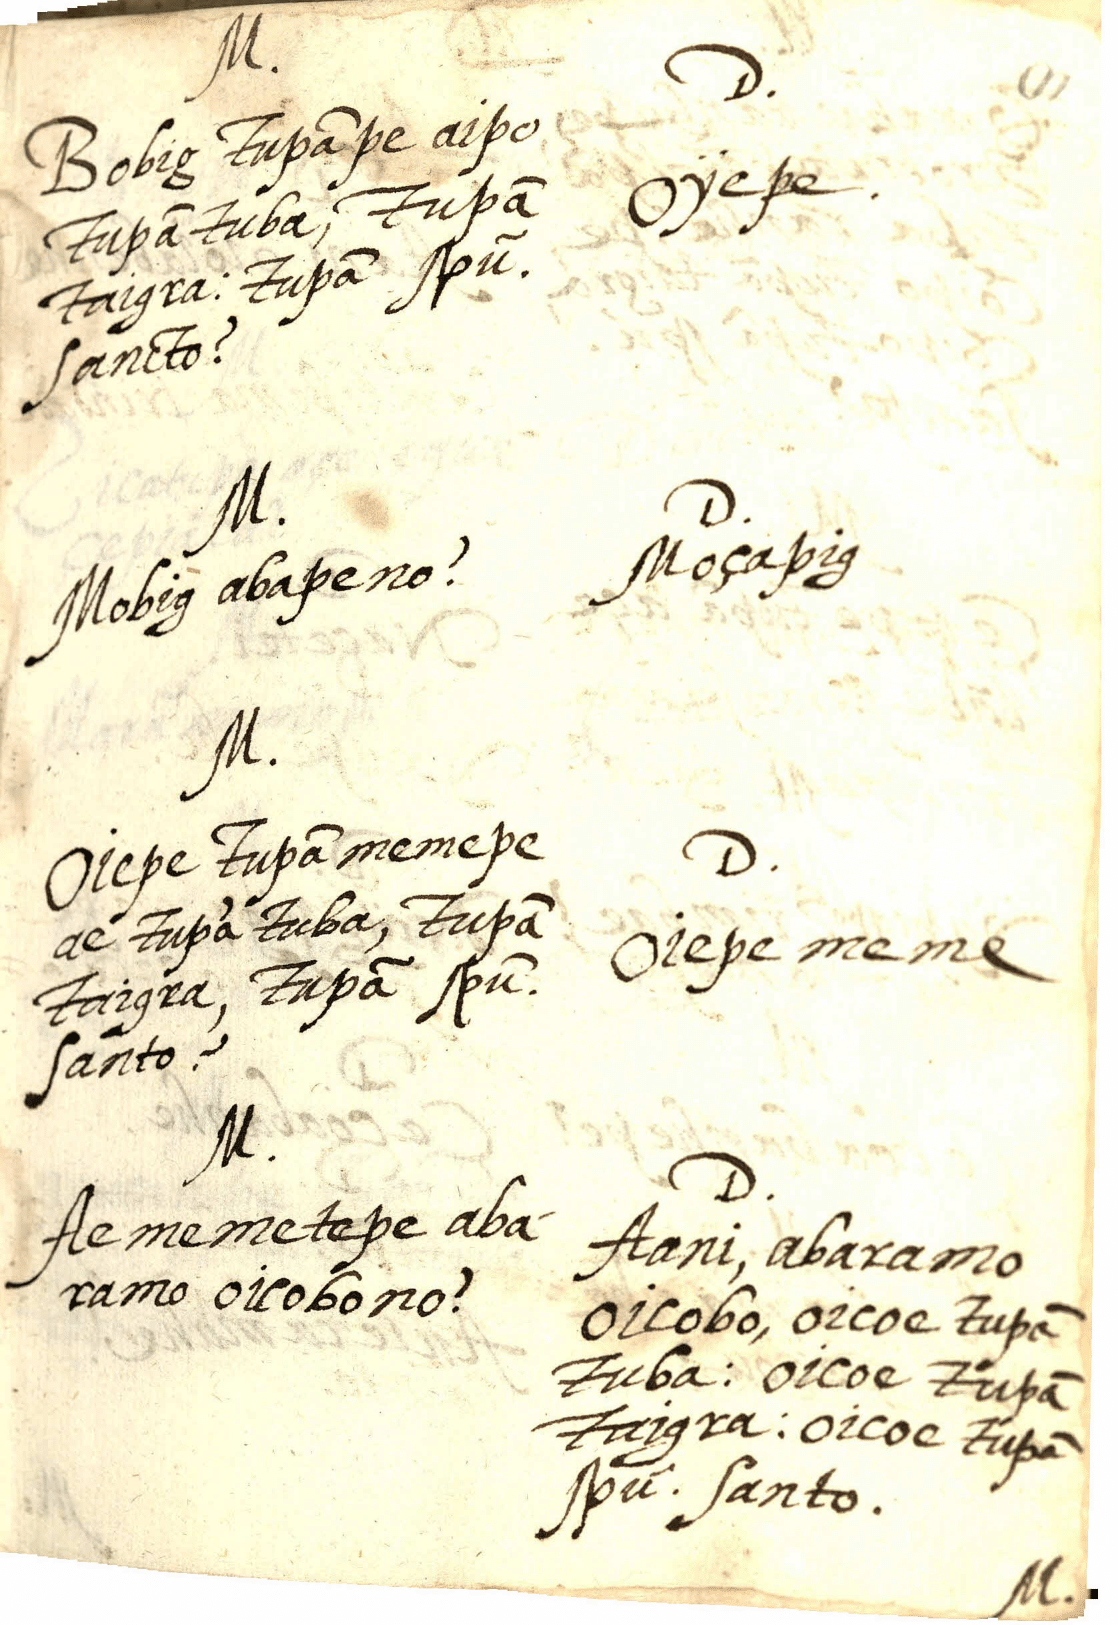 M.
Bobig Tupã pe aipo
tupã tuba, tupã
taigra: tupã spũ.
sancto?
D.
Oÿepe.
M.
Mobig abapeno?
D.
Moçapig
M.
Oiepe tupã memepe
ae tupã tuba, tupã
taigra, tupã spũ.
santo?
D.
Oiepe meme
M.
Ae memetepe aba-
ramo oicobono?
D.
Aani, abaramo
oicobo, oicoe tupã
tuba: oicoe tupã
taigra: oicoe tupã
spũ. santo.
M.